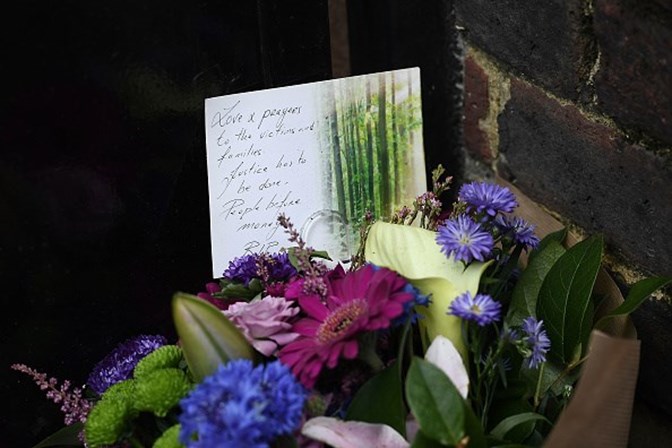 Love & prayers
to the victims and
families
Justice has to
be done.
People before
money
RIP